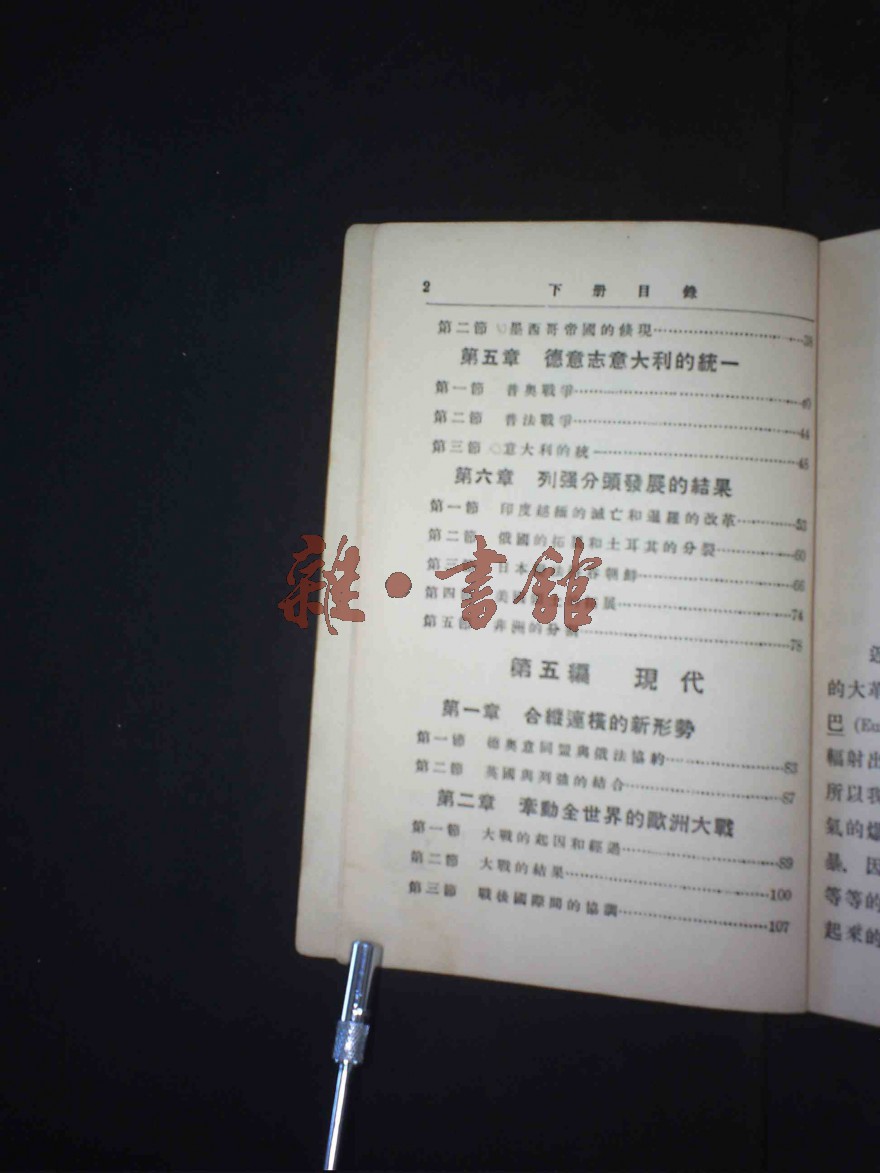 2 下册目錄
第二節 墨西哥帝國的倏現 38
第五章 德意志意大利的統一
第一節 普奧戰爭 40
第二節 普法戰爭 44
第三節 意大利的統一 48
第六章 列强分頭發展的結果
第一節 印度越緬的滅亡和暹羅的改革 53
第二節 俄國的拓展和土耳其的分裂 60
第三節 日本 朝鮮 66
第四 美 展 74
第五節 非洲的分割 78
第五編 現代
第一章 合縱連橫的新形勢
第一節 德奧意同盟與俄法協約 83
第二節 英國與列強的結合 87
第二章 牽動全世界的歐洲大戰
第一節 大戰的起因和經過 89
第二節 大戰的結果 100
第三節 戰後國際間的協調 107
的大革
巴 (Eu
輻射出
所以我
氣的爆
暴，因
等等的
起來的
雜·書館